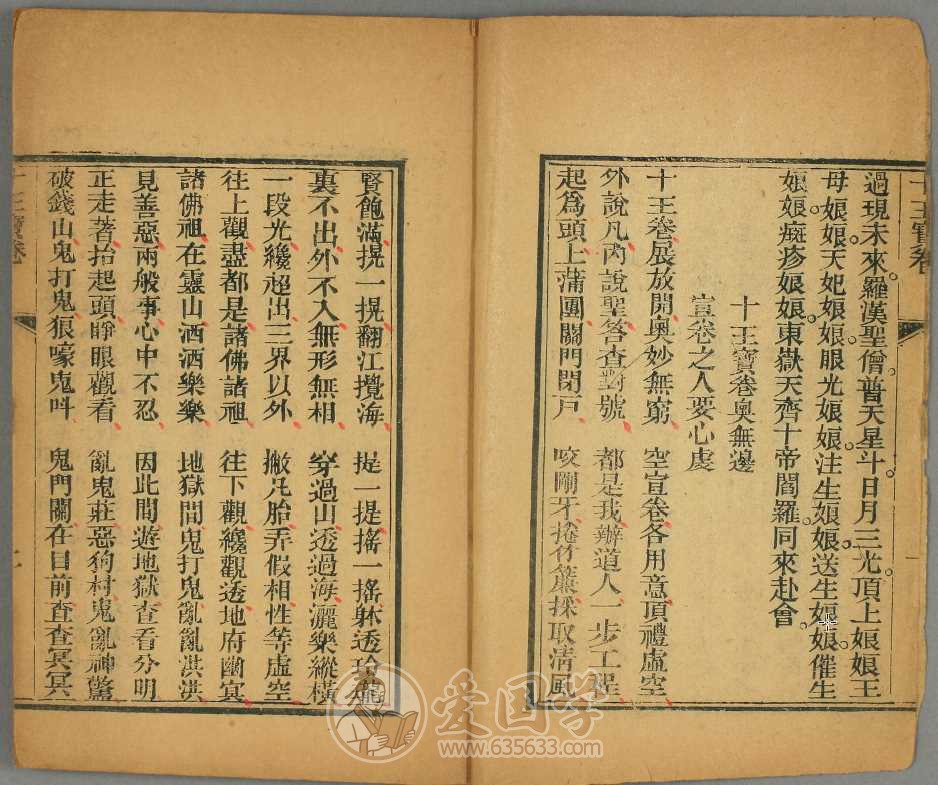 十王寶卷
過現未來。羅漢聖僧。普天星斗。日月三光。頂上娘娘。王
母娘娘。天妃娘娘。眼光娘娘。注生娘娘。送生娘娘。催生
娘娘。癍疹娘娘。東嶽天齊。十帝閻羅。同來赴會。
十王寶卷奧無邊
宣卷之人要心虔
十王卷展放開奧妙無窮 空宣卷各用意頂禮虛空
外說凡內說聖答查對號 都是我辦道人一步工程
起為頭上蒲團關門閉戶 咬剛牙捲竹簾採取清風
賢飽滿提一提翻江攪海 提一提搖一搖躰透玲瓏
裏不出外不入無形無相 穿過山透過海灑樂縱橫
一段光纔超出三界以外 撇凡胎弄假相性等虛空
往上觀盡都是諸佛諸祖 往下觀纔觀透地府幽冥
諸佛祖在靈山洒洒樂樂 地獄間鬼打鬼亂亂洪洪
見善惡兩般事心中不忍 因此間遊地獄查看分明
正走著抬起頭睜眼觀看 亂鬼莊惡狗村鬼亂神驚
破錢山鬼打鬼狼嚎鬼叫 鬼門關在目前查查冥冥
十王寶卷
愛国学
www.635633.com